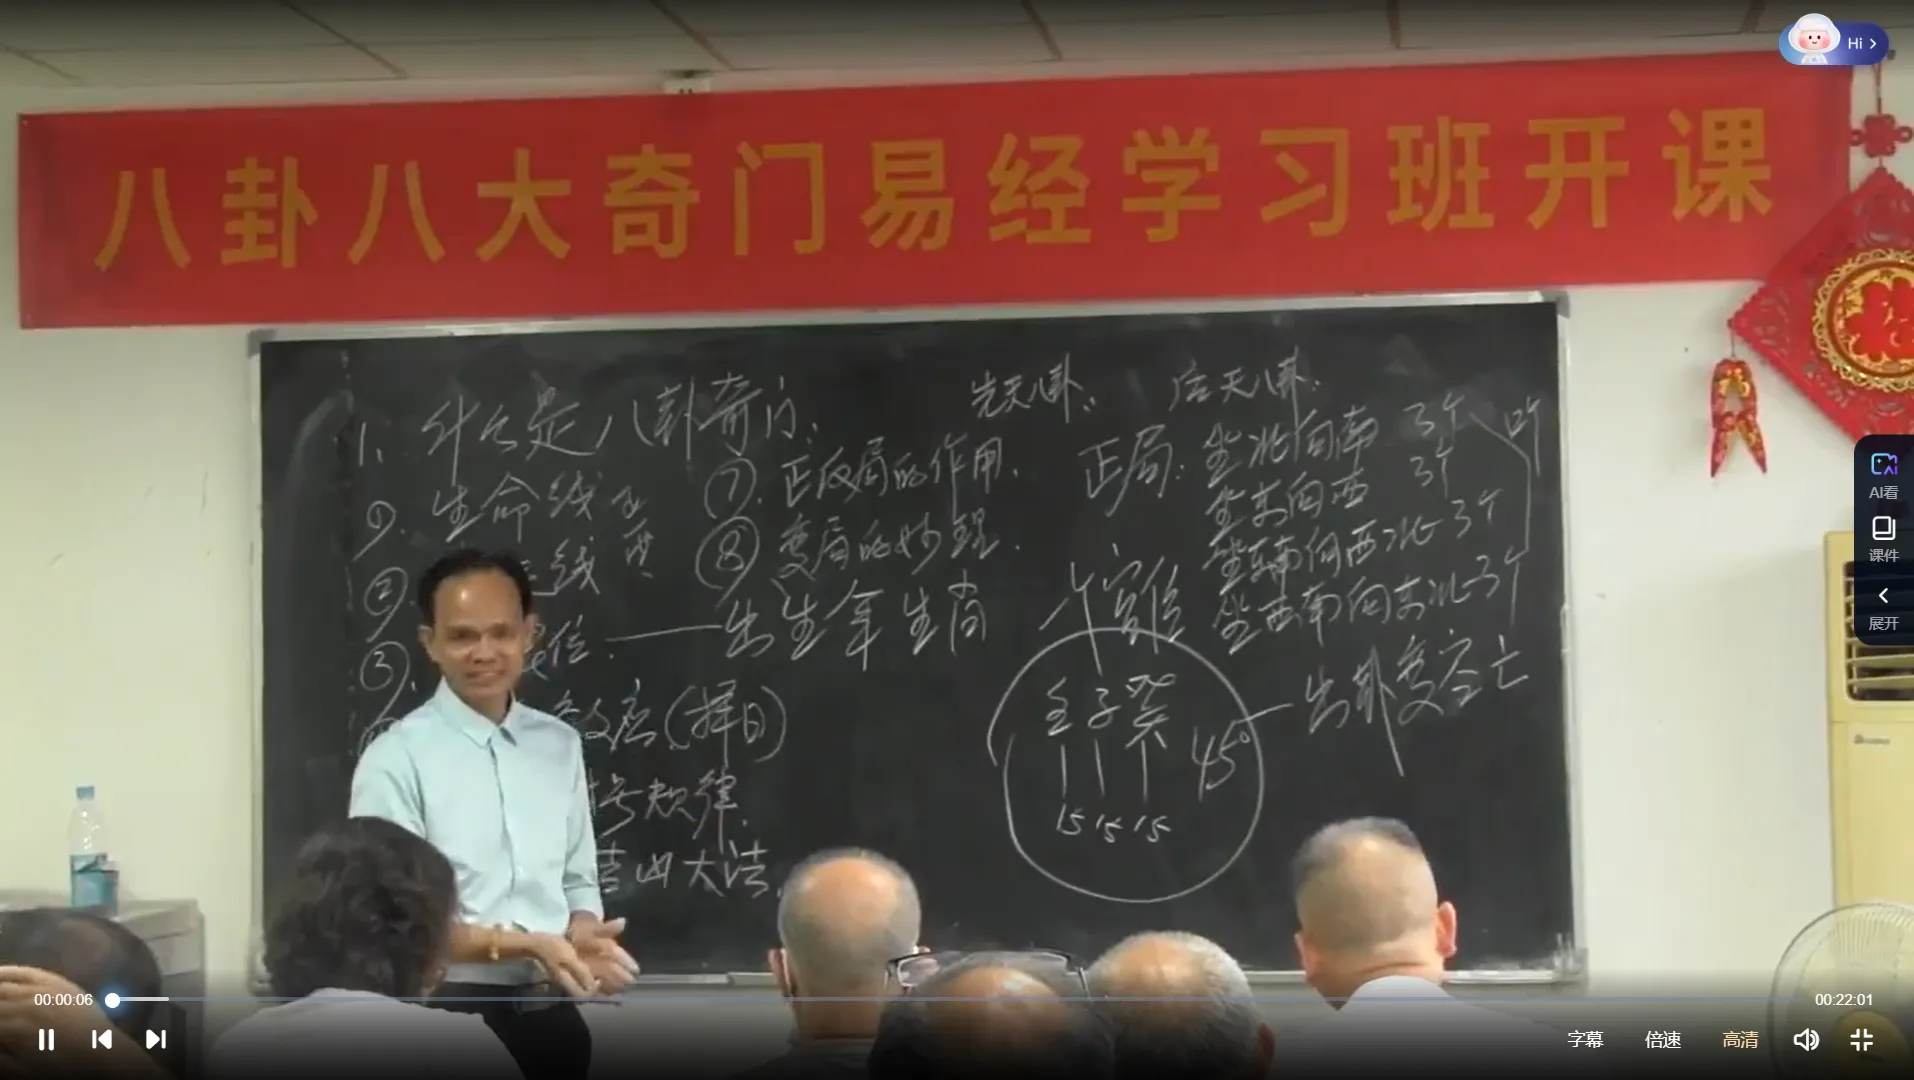 Hi
八卦八大奇门易经学习班开课
先天八卦. 后天八卦.
1、什么是八卦奇门.
生命线
⑦.正反局的作用.
正局:坐北向南 3个
坐东向西 3个
⑧变局的妙理.
坐东南向西北 3个
坐西南向东北 3个
②.
线
③.
位.——出生年生肖
壬子癸
45°——出卦变空亡
效应(择日)
15 15 15
号规律.
吉凶大法.
AI看
课件
展开
00:00:06
00:22:01
字幕
倍速
高清